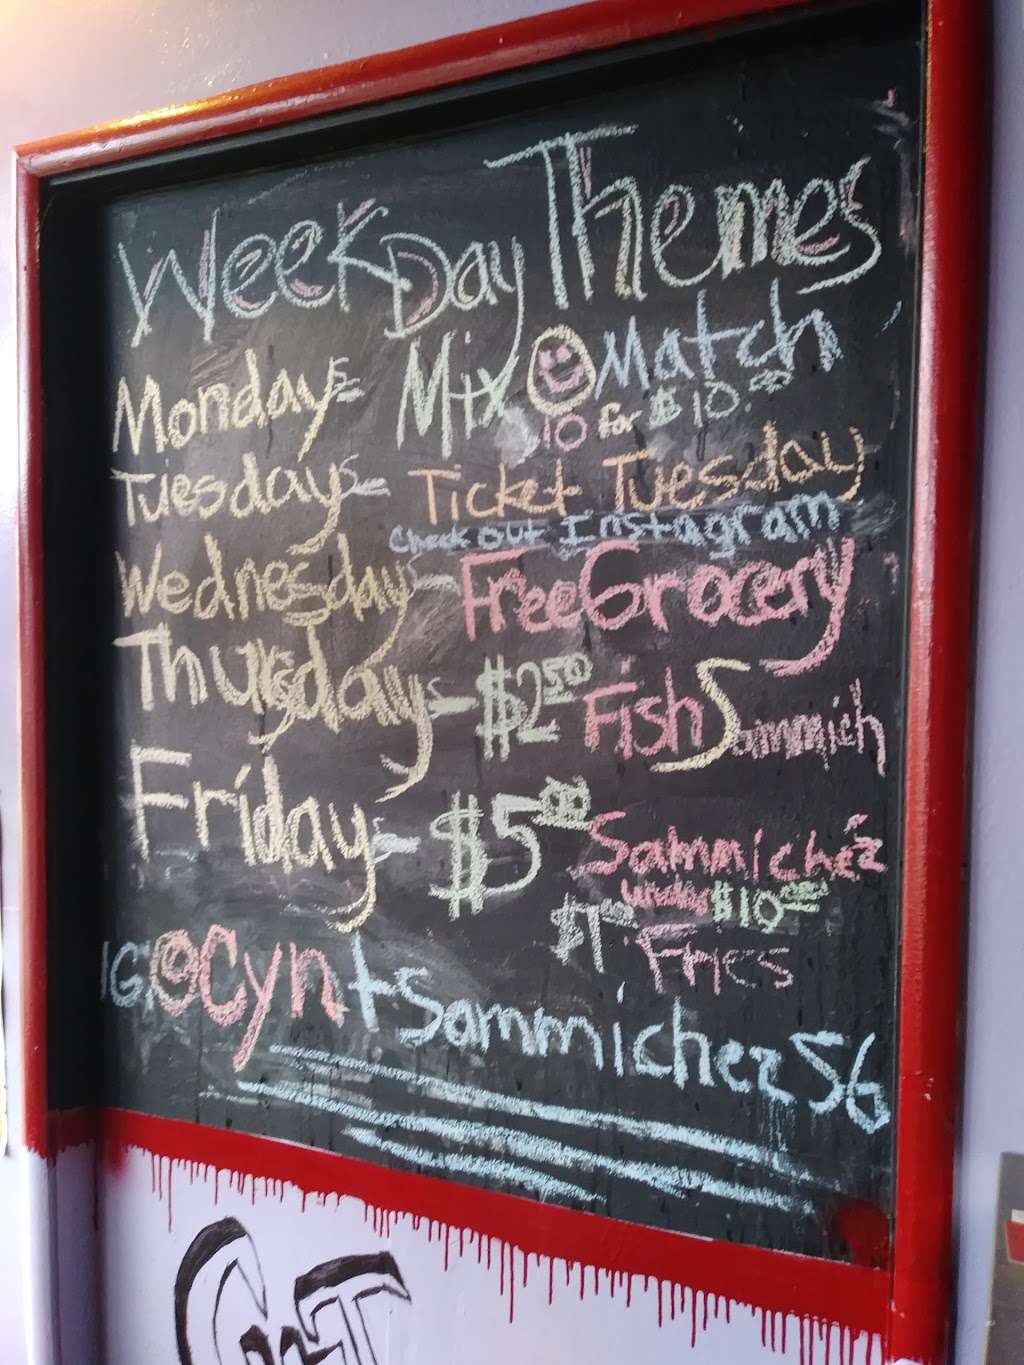 WeekDay Themes
Mondays Mix Match
10 for $10.00
Tuesdays- Ticket Tuesday
Check out Instagram
Wednesday- Free Grocery
Thursdays- $2.50 Fish Sammich
Friday- $5.00 Sammichez
under $10.00
$1.00 Fries
IG @Cyn+Sammichez56
GET